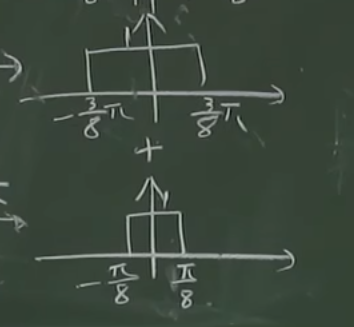 1
-3/8 π 3/8 π
+
1
-π/8 π/8